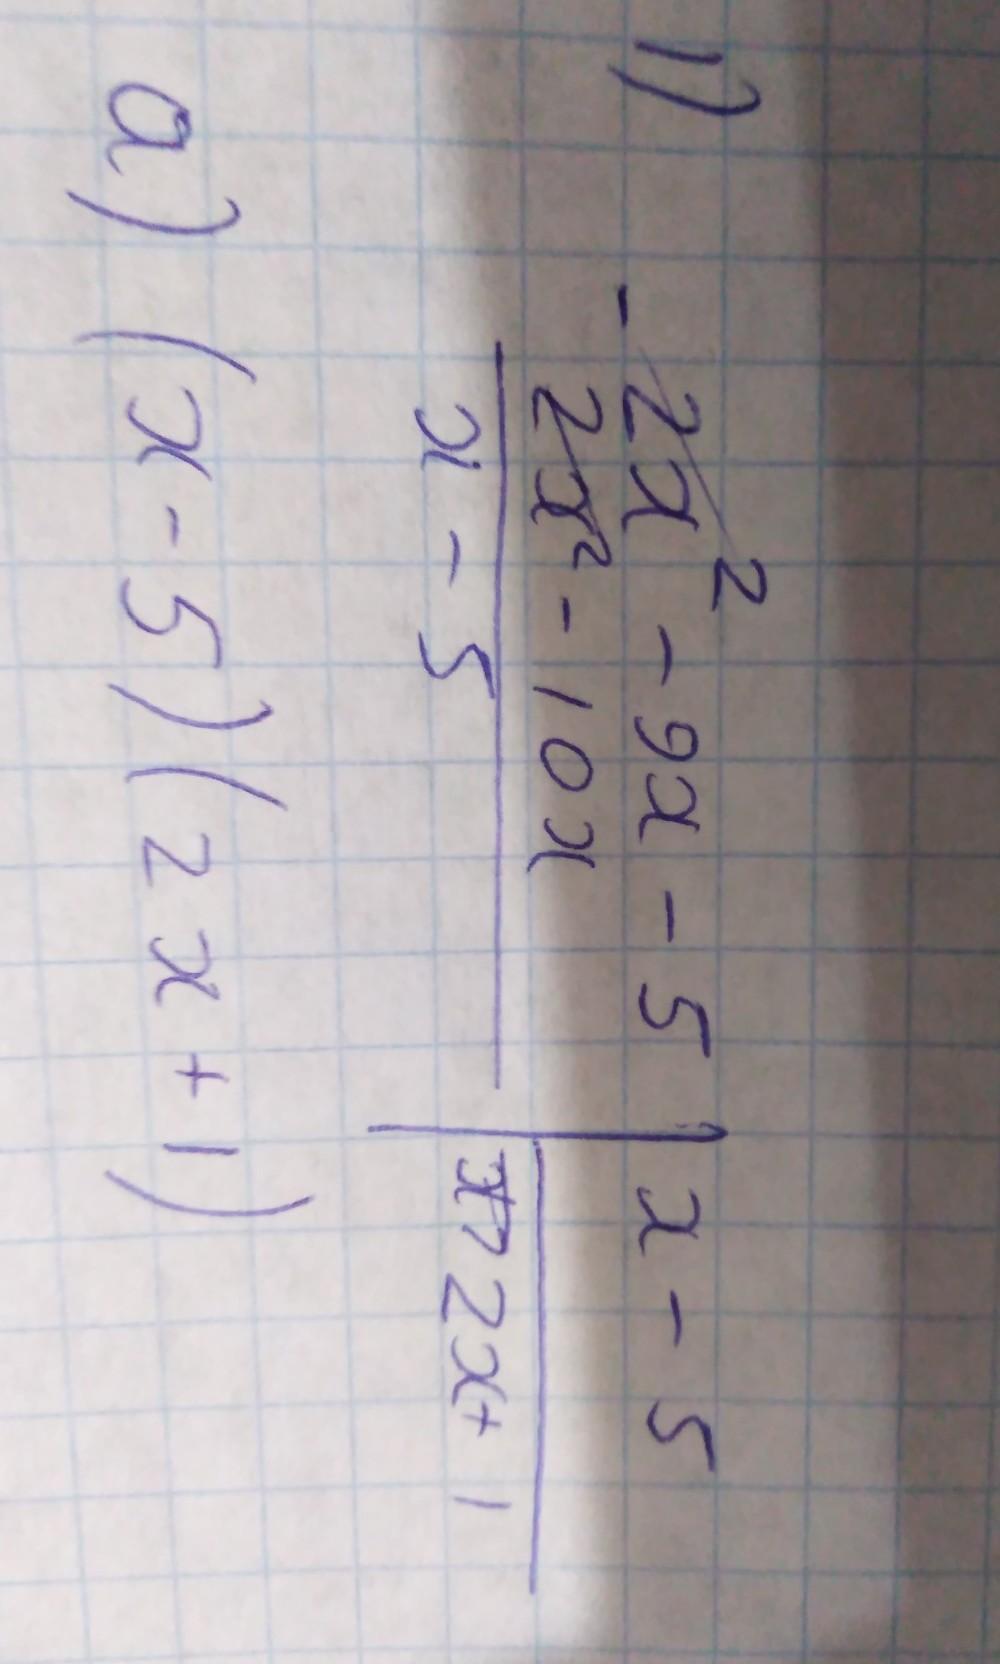 1) - 2x² - 9x - 5 | x - 5
2x² - 10x
2x + 1
x - 5
a) (x - 5)(2x + 1)